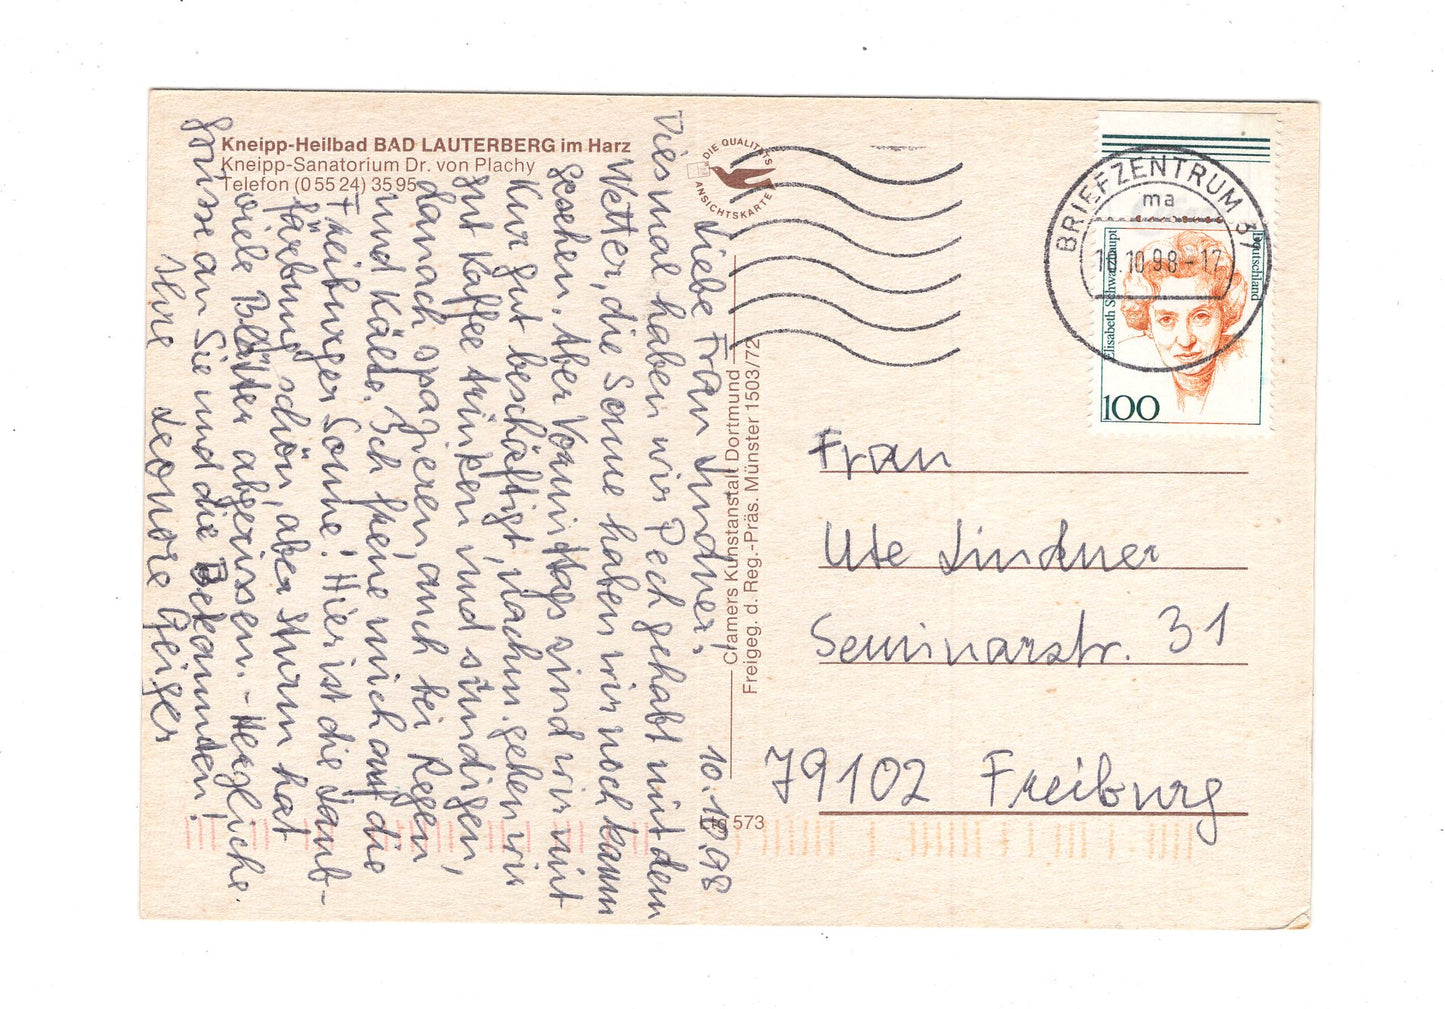 Kneipp-Heilbad BAD LAUTERBERG im Harz
Kneipp-Sanatorium Dr. von Plachy
Telefon (0 55 24) 35 95
DIE QUALITÄTS
ANSICHTSKARTE
BRIEFZENTRUM 37
ma
10.10.98-17
Deutschland
Elisabeth Schwarzhaupt
100
10.10.98
Liebe Frau Lindner,
Diesmal haben wir Pech gehabt mit dem
Wetter, die Sonne haben wir noch kaum
gesehen. Aber Vormittags sind wir mit
Kur gut beschäftigt, nachm. gehen wir
gut Kaffee trinken und sündigen,
danach spazieren, auch bei Regen
und Kälte. Ich freue mich auf die
Freiburger Sonne! Hier ist die Laub-
färbung schön, aber Sturm hat
viele Blätter abgerissen. - Herzliche
Grüsse an Sie und die Bekannten!
Ihre Leonore Geiger
Cramers Kunstanstalt Dortmund
Freigeg. d. Reg.-Präs. Münster 1503/72
Ltg 573
Frau
Ute Lindner
Seminarstr. 31
79102 Freiburg